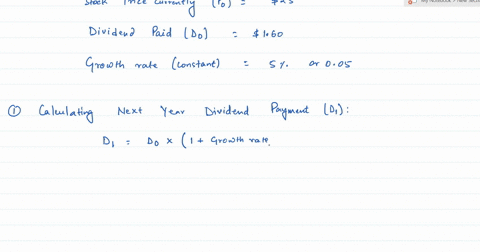 Stock Price Currently (P0) = $25
Dividend Paid (D0) = $1.60
Growth rate (constant) = 5% or 0.05
① Calculating Next Year Dividend Payment (D1):
D1 = D0 × (1 + Growth rate